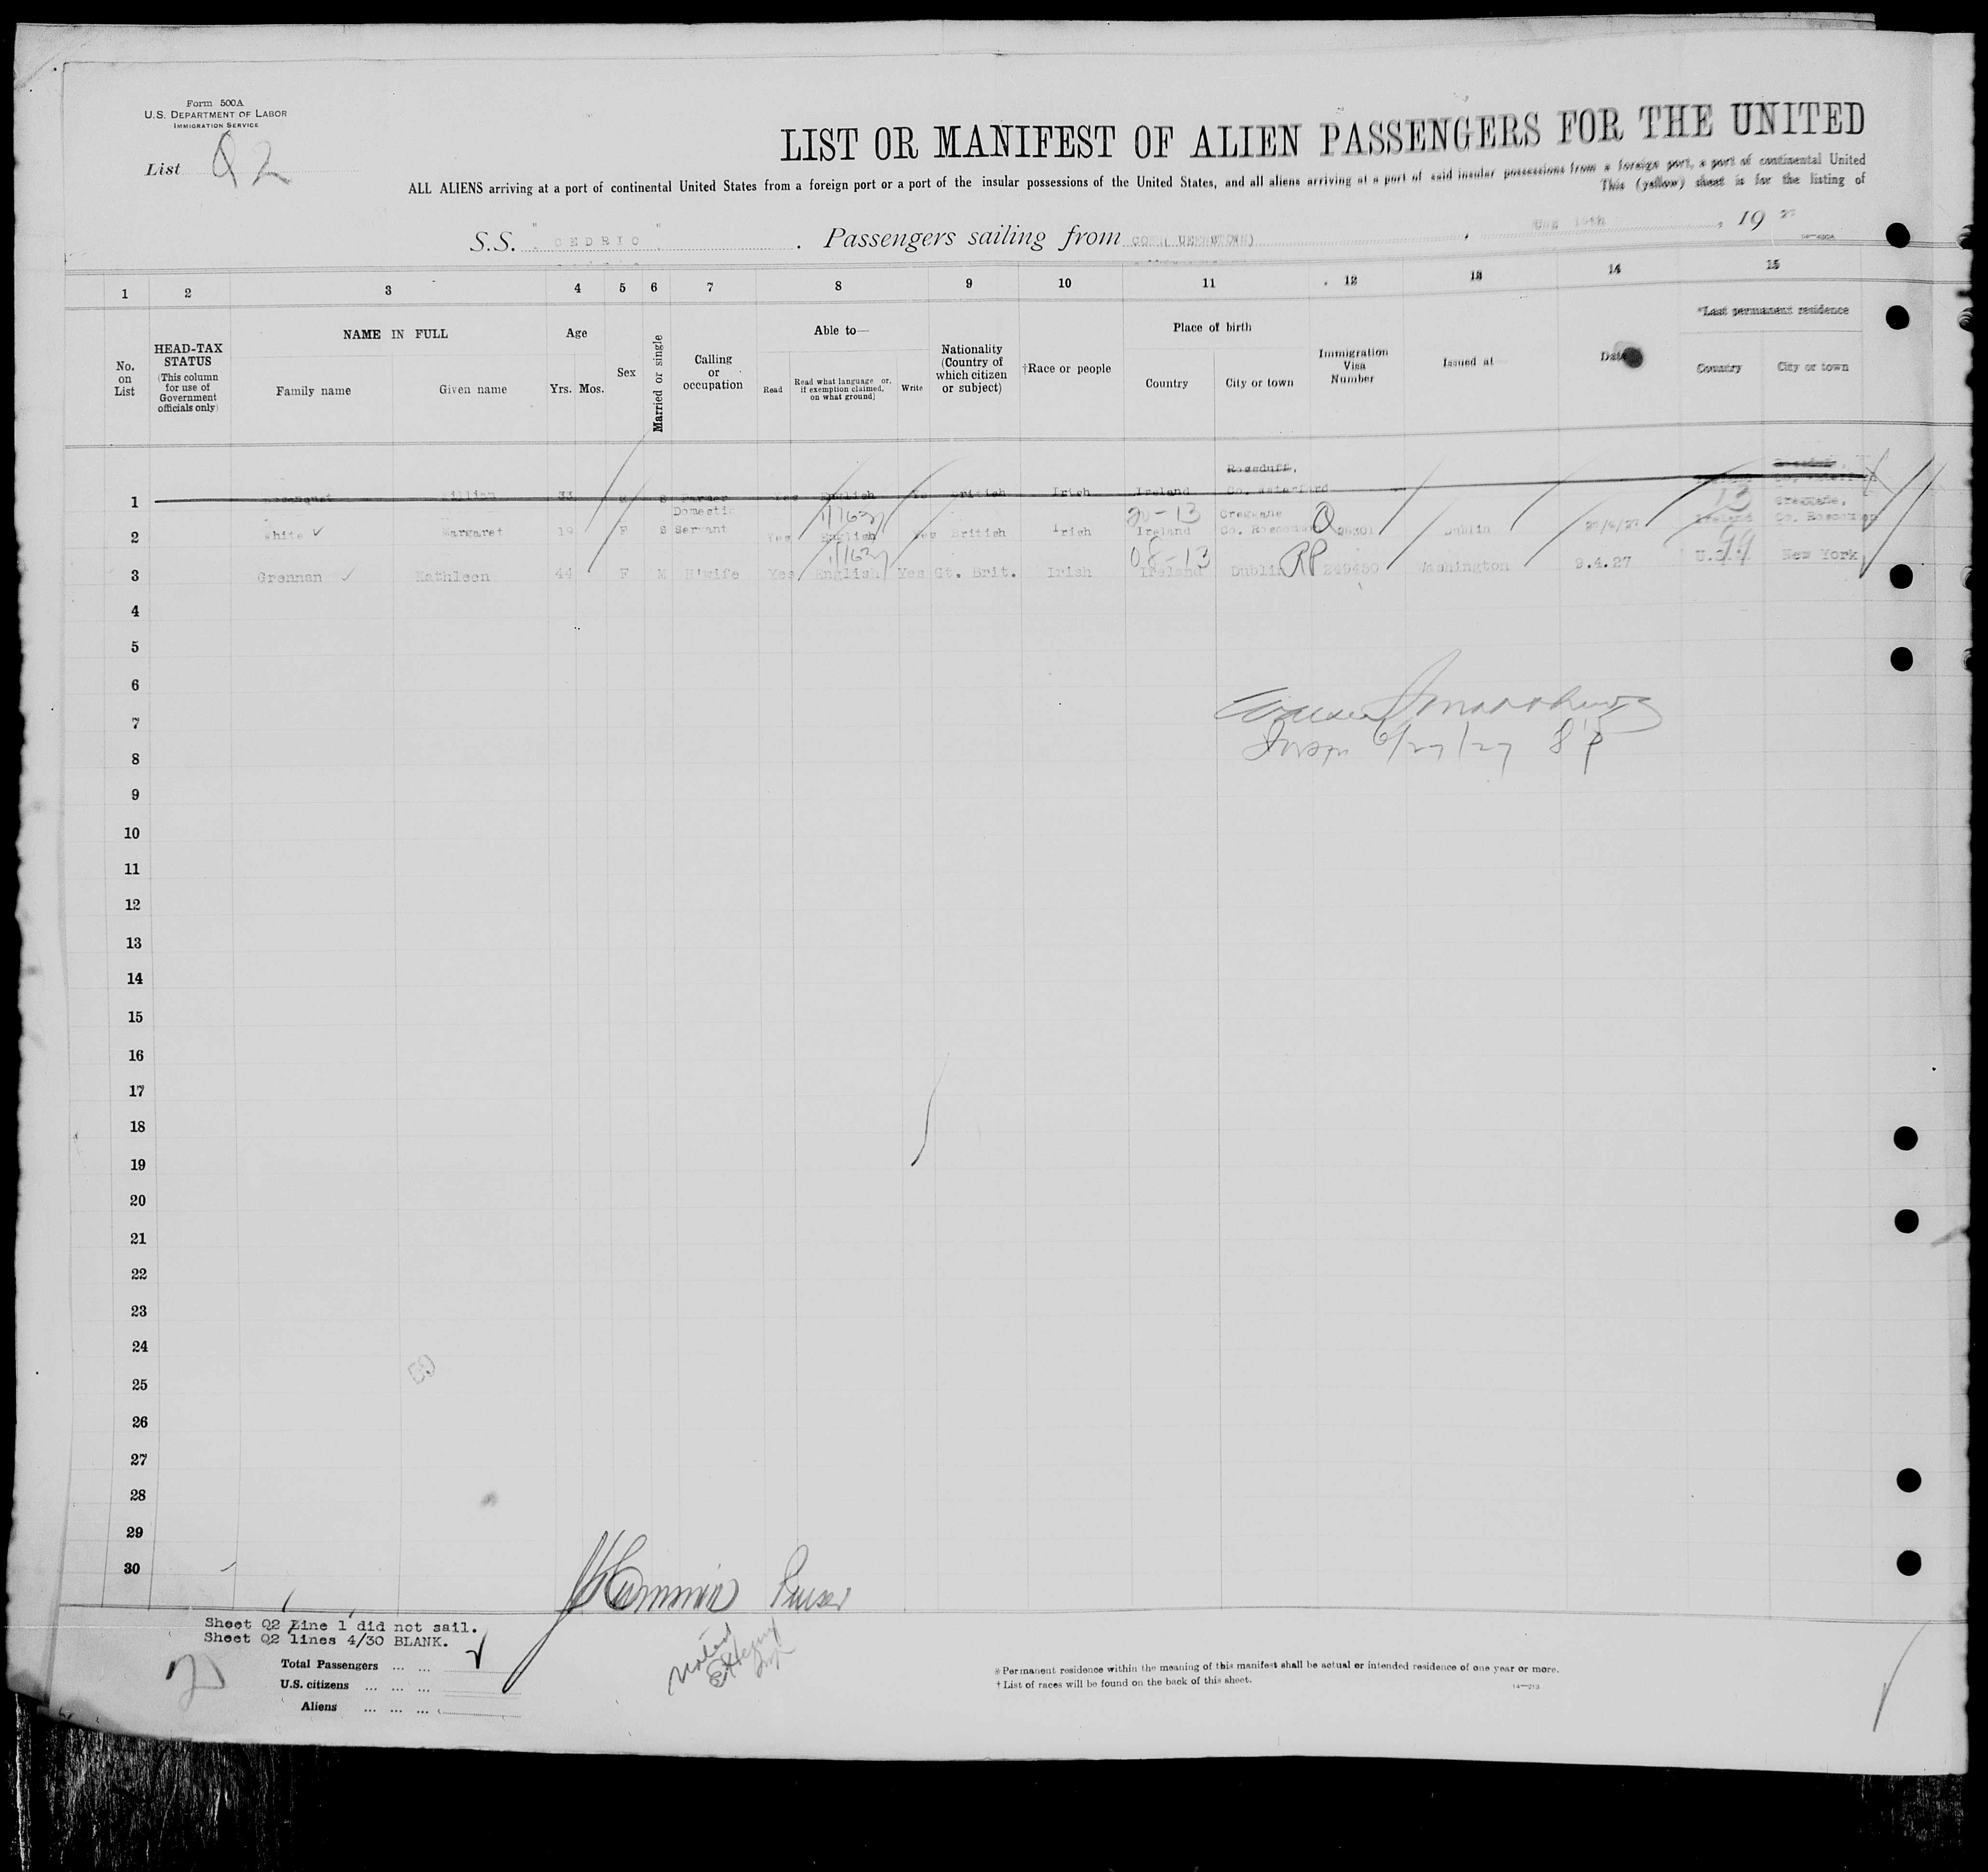 Form 500A
U.S. DEPARTMENT OF LABOR
IMMIGRATION SERVICE
List Q2
LIST OR MANIFEST OF ALIEN PASSENGERS FOR THE UNITED
ALL ALIENS arriving at a port of continental United States from a foreign port or a port of the insular possessions of the United States, and all aliens arriving at a port of said insular possessions from a foreign port, a port of continental United
This (yellow) sheet is for the listing of
S.S. "CEDRIC". Passengers sailing from , 19 27
1 2 3 4 5 6 7 8 9 10 11 12 13 14 15
No. on List
HEAD-TAX STATUS (This column for use of Government officials only)
NAME IN FULL
Family name Given name
Age
Yrs. Mos.
Sex
Married or single
Calling or occupation
Able to—
Read
Read what language or, if exemption claimed, on what ground)
Write
Nationality (Country of which citizen or subject)
†Race or people
Place of birth
Country City or town
Immigration Visa Number
Issued at
Date
*Last permanent residence
Country City or town
1 William 33 S Farmer Yes English British Irish Ireland Rossduff, Co. Waterford
2 White ✓ Margaret 19 F S Domestic Servant Yes English 1/1632 Yes British Irish 20-13 Ireland Creggane Co. Roscommon Dublin Ireland 13 Creggane, Co. Roscommon
3 Grennan ✓ Kathleen 44 F M H'wife Yes English 1/1632 Yes Gt. Brit. Irish 08-13 Ireland Dublin RP 249450 Washington 9.4.27 U.S. 99 New York
4
5
6
7
8
6/27/27
9
10
11
12
13
14
15
16
17
18
19
20
21
22
23
24
25
26
27
28
29
30
59
Purser
Sheet Q2 Line 1 did not sail.
Sheet Q2 lines 4/30 BLANK.
Total Passengers ... ...
U.S. citizens ... ... ...
Aliens ... ... ...
Noted
*Permanent residence within the meaning of this manifest shall be actual or intended residence of one year or more.
†List of races will be found on the back of this sheet.
14—213